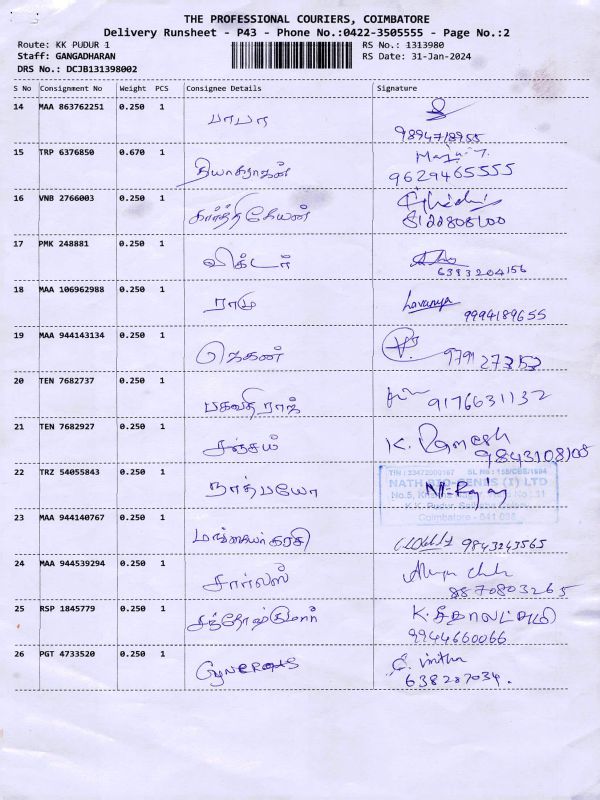 THE PROFESSIONAL COURIERS, COIMBATORE
Delivery Runsheet - P43 - Phone No.:0422-3505555 - Page No.:2
Route: KK PUDUR 1 RS No.: 1313980
Staff: GANGADHARAN RS Date: 31-Jan-2024
DRS No.: DCJB131398002
S No Consignment No Weight PCS Consignee Details Signature
14 MAA 863762251 0.250 1 பாபா
9894718955
15 TRP 6376850 0.670 1 தியாகராகன்
9629465555
16 VNB 2766003 0.250 1 கார்த்திகேயன்
8122808100
17 PMK 248881 0.250 1 விக்டர்
6383204156
18 MAA 106962988 0.250 1 ராமு Lavanya
9994189655
19 MAA 944143134 0.250 1 ஜெகன்
20 TEN 7682737 0.250 1 பகவதிராஜ்
9176631132
21 TEN 7682927 0.250 1 சஞ்சய் K. Ramesh
9843108108
22 TRZ 54055843 0.250 1 நாத்பயோ
NATH BIO-GENES (I) LTD
K.K. Pudur
Coimbatore - 641 038
23 MAA 944140767 0.250 1 மங்கையர்கரசி
9843243565
24 MAA 944539294 0.250 1 சார்லஸ்
8870803265
25 RSP 1845779 0.250 1 சந்தோஷ்குமார் K. சீதாலட்சுமி
9944660066
26 PGT 4733520 0.250 1
638287034.